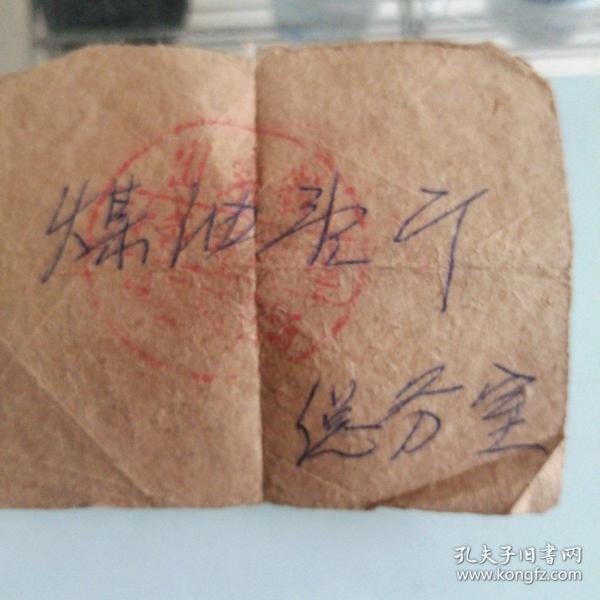 煤油壹斤
总务室
孔夫子旧书网
www.kongfz.com